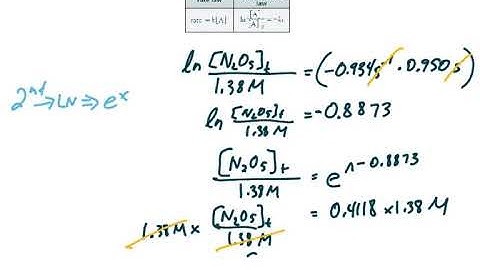 law
rate = k[A]
ln [N₂O₅]t / 1.38 M = (-0.934 s⁻¹ · 0.950 s)
2nd → LN ⇒ eˣ
ln [N₂O₅]t / 1.38 M = -0.8873
[N₂O₅]t / 1.38 M = e^-0.8873
1.38 M × [N₂O₅]t / 1.38 M = 0.4118 × 1.38 M